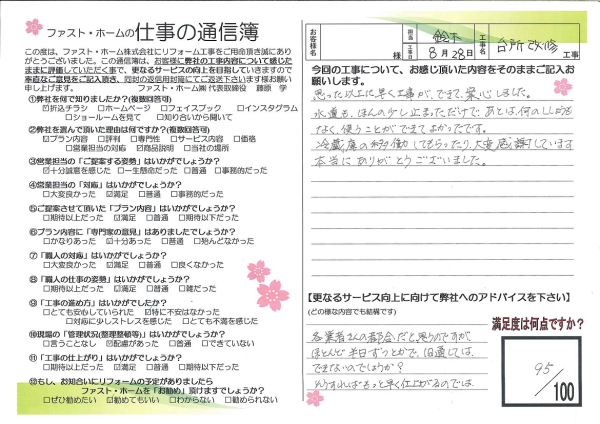 ファスト・ホームの仕事の通信簿
この度は、ファスト・ホーム株式会社にリフォーム工事をご用命頂き誠にあり
がとうございました。この通信簿は、お客様に弊社の工事内容について感じた
ままに評価していただく事で、更なるサービスの向上を目指していきますので
率直なご意見をご記入頂き、同封の返信用封筒にてご返送下さいます様お願い
申し上げます。 ファスト・ホーム㈱ 代表取締役 藤原 学
①弊社を何で知りましたか?(複数回答可)
☑折込チラシ □ホームページ □フェイスブック □インスタグラム
□ショールームを見て □知り合いから聞いて
②弊社を選んで頂いた理由は何ですか?(複数回答可)
☑プラン内容 □評判 □専門性 □サービス内容 □価格
□営業担当の対応 ☑商品説明 □当社の場所
③営業担当の「ご提案する姿勢」はいかがでしょうか?
☑十分誠意を感じた □一生懸命だった □普通 □事務的だった
④営業担当の「対応」はいかがでしょうか?
□大変良かった ☑満足 □普通 □事務的だった
⑤ご提案させて頂いた「プラン内容」はいかがでしょうか?
□期待以上だった ☑満足 □普通 □期待以下だった
⑥プラン内容に「専門家の意見」はありましたでしょうか?
□かなりあった ☑十分あった □普通 □殆んどなかった
⑦「職人の対応」はいかがでしょうか?
□大変良かった ☑満足 □普通 □良くなかった
⑧「職人の仕事の姿勢」はいかがでしょうか?
□期待以上だった ☑満足 □普通 □雑だった
⑨「工事の進め方」はいかがでしょうか?
□とても安心していられた ☑特に不安はなかった
□対応に少しストレスを感じた □とても不満を感じた
⑩現場の「管理状況(整理整頓等)」はいかがでしょうか?
□言うことなし ☑配慮があった □普通 □できていない
⑪「工事の仕上がり」はいかがでしょうか?
□期待以上だった ☑満足 □普通 □期待以下だった
⑫もし、お知合いにリフォームの予定がありましたら
ファスト・ホームを「お勧め」頂けますでしょうか?
□ぜひ勧めたい ☑勧めてもいい □わからない □勧められない
お客様名 様 担当 鈴木 工事日 8月28日 工事名 台所改修 工事
今回の工事について、お感じ頂いた内容をそのままご記入お
願いします。
思った以上に早く工事ができて、楽心しました。
水道も、ほんの少し止まっただけで、あとは、何のししょうも
なく、使うことができてよかったです。
冷蔵庫の移動してもらったり、大変感謝しています
本当にありがとうございました。
【更なるサービス向上に向けて弊社へのアドバイスを下さい】
(どの様な内容でも結構です)
各業者さんの都合だと思うのですが、
ほとんど半日ずつとかで、1日通しては
できないのでしょうか?
そうすればもっと早く仕上がるのでは
満足度は何点ですか?
95/100